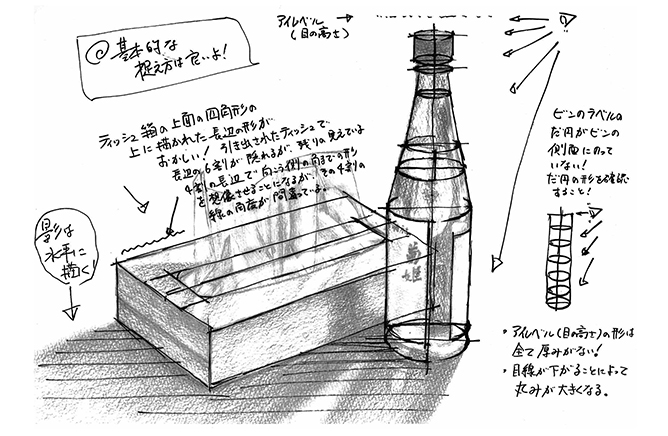 アイレベル
(目の高さ)
◎基本的な
捉え方は良いよ!
ティッシュ箱の上面の四角形の
上に描かれた長辺の形が
おかしい! 引き出されたティッシュで、
長辺の6割が隠れるが、残りの見えている
4割の長辺で向こう側の角までの形
を想像させることになるが、その4割の
線の角度が間違ってるよ。
影は
水平に
描く!
夢
姫
ビンのラベルの
だ円がビンの
側面にのって
いない!
だ円の形を確認
すること!
・アイレベル(目の高さ)の形は
全て厚みがない!
・目線が下がることによって
丸みが大きくなる。